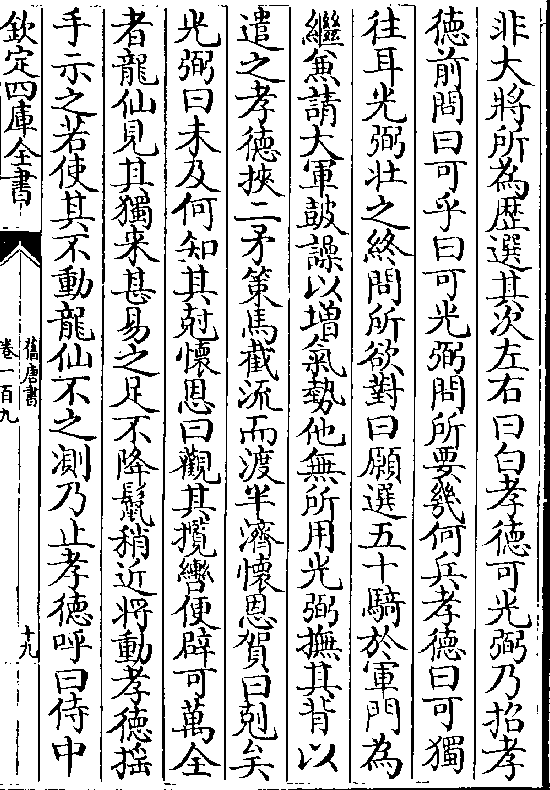 非大將所為歷選其次左右曰白孝德可光弼乃招孝
德前問曰可乎曰可光弼問所要幾何兵孝德曰可獨
往耳光弼壯之終問所欲對曰願選五十騎於軍門為
繼兼請大軍鼓譟以增氣勢他無所用光弼撫其背以
遣之孝德挾二矛策馬截流而渡半濟懷恩賀曰剋矣
光弼曰未及何知其尅懷恩曰觀其攬轡便辟可萬全
者龍仙見其獨來甚易之足不降鬛稍近將動孝德揺
手示之若使其不動龍仙不之測乃止孝德呼曰侍中
欽定四庫全書
舊唐書
卷一百九
十九